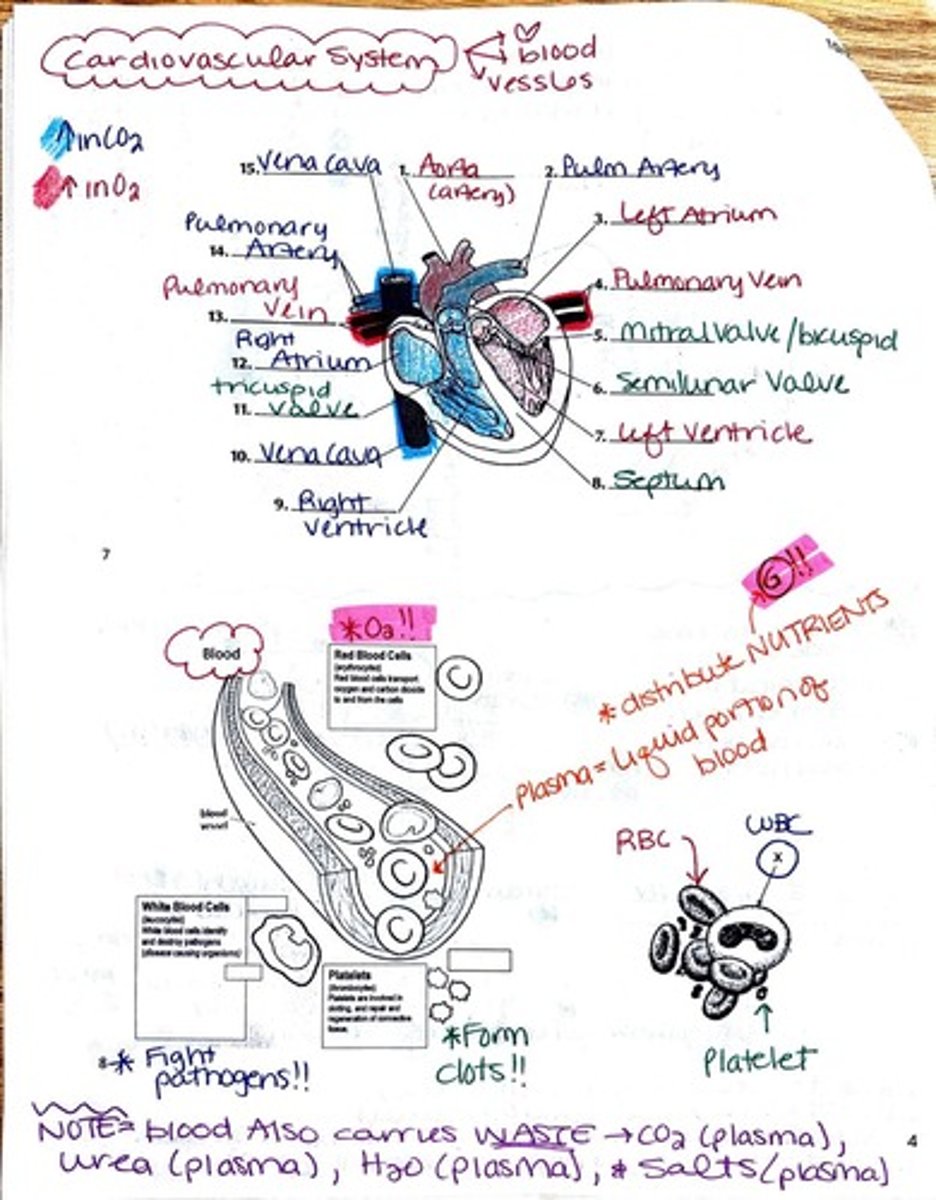 Cardiovascular System
blood
vessles
↑ in CO2
↑ in O2
15. Vena Cava
1. Aorta
(artery)
2. Pulm Artery
3. Left Atrium
Pulmonary
14. Artery
4. Pulmonary Vein
Pulmonary
13. Vein
5. Mitral valve/bicuspid
Right
12. Atrium
6. Semilunar Valve
tricuspid
11. Valve
7. Left Ventricle
10. Vena Cava
8. Septum
9. Right
Ventricle
7
G!!
*O2!!
Blood
Red Blood Cells
(erythrocytes)
Red blood cells transport
oxygen and carbon dioxide
to and from the cells
* distribute NUTRIENTS
Plasma = Liquid portion of
blood
blood
vessel
RBC
WBC
x
White Blood Cells
(leucocytes)
White blood cells identify
and destroy pathogens
(disease causing organisms)
Platelets
(thrombocytes)
Platelets are involved in
clotting, and repair and
regeneration of connective
tissue.
8 * Fight
pathogens!!
*Form
clots!!
Platelet
NOTE= blood Also carries WASTE → CO2 (plasma),
urea (plasma), H2O (plasma), * Salts (plasma)
4